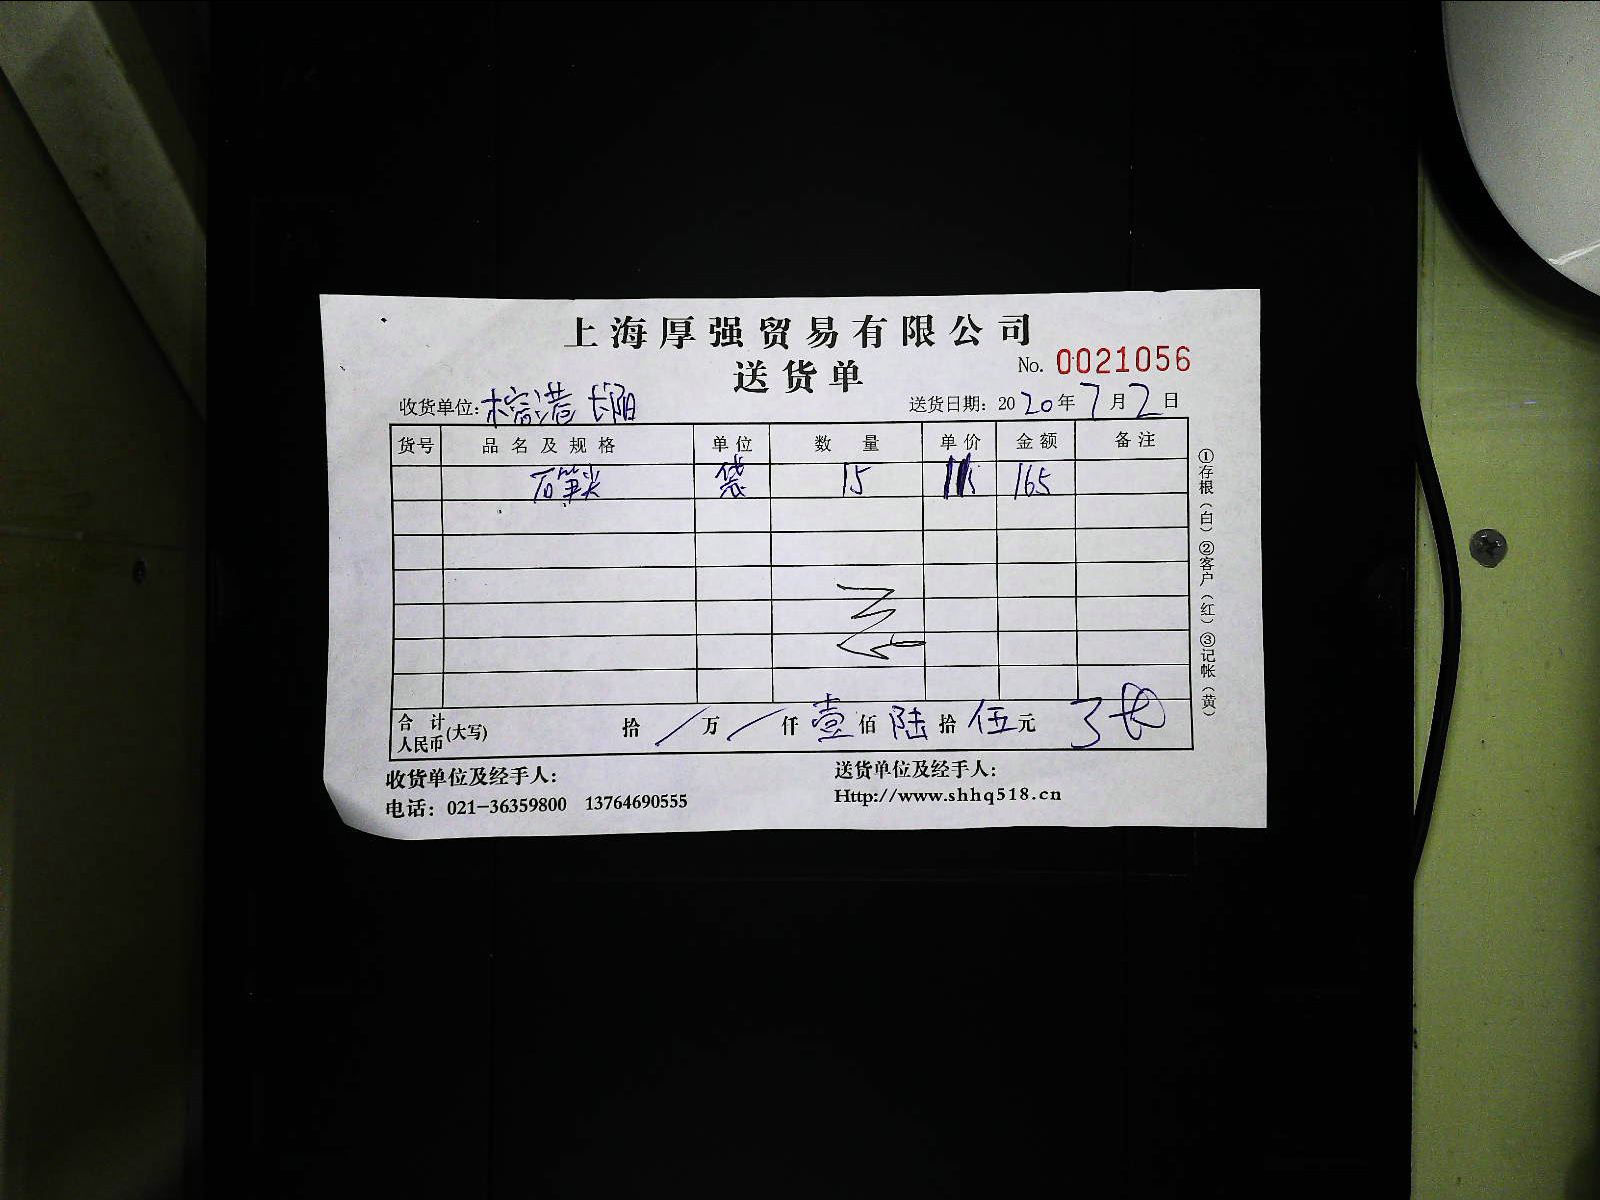 上海厚强贸易有限公司
送货单
No. 0021056
收货单位: 榕港 长阳
送货日期: 2020年7月2日
货号 品名及规格 单位 数量 单价 金额 备注
石笋尖 袋 15 11 165
合计人民币(大写) 拾/万/仟壹佰陆拾伍元
收货单位及经手人:
送货单位及经手人:
电话: 021-36359800 13764690555
Http://www.shhq518.cn
①存根(白)②客户(红)③记帐(黄)